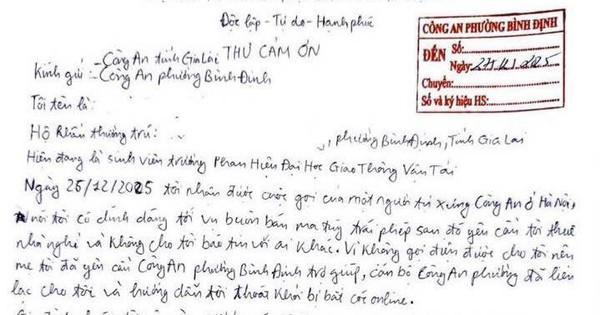 Độc lập - Tự do - Hạnh phúc
THƯ CẢM ƠN
Kính gửi: - Công An tỉnh Gia Lai
- Công An phường Bình Định
CÔNG AN PHƯỜNG BÌNH ĐỊNH
ĐẾN Số:
Ngày:
Chuyển:
Số và ký hiệu HS:
Tôi tên là:
Hộ khẩu thường trú: , phường Bình Định, Tỉnh Gia Lai
Hiện đang là sinh viên trường Phân Hiệu Đại Học Giao Thông Vận Tải
Ngày 25/12/2025 tôi nhận được cuộc gọi của một người tự xưng Công An ở Hà Nội,
nói tôi có dính dáng tới vụ buôn bán ma túy trái phép sau đó yêu cầu tôi thuê
nhà nghỉ và không cho tôi báo tin với ai khác. Vì không gọi điện được cho tôi nên
mẹ tôi đã yêu cầu Công An phường Bình Định trợ giúp, cán bộ Công An phường đã liên
lạc cho tôi và hướng dẫn tôi thoát khỏi bị bắt cóc online.